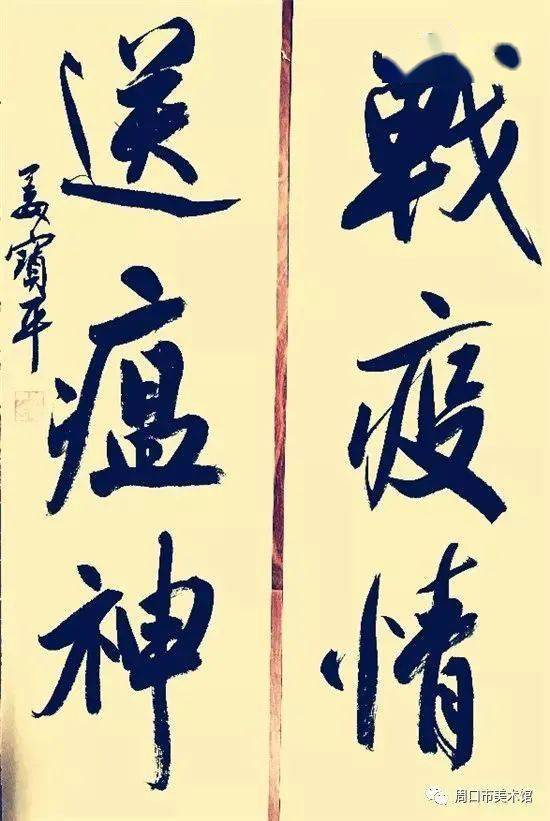 戰疫情
送瘟神
姜寶平
周口市美术馆